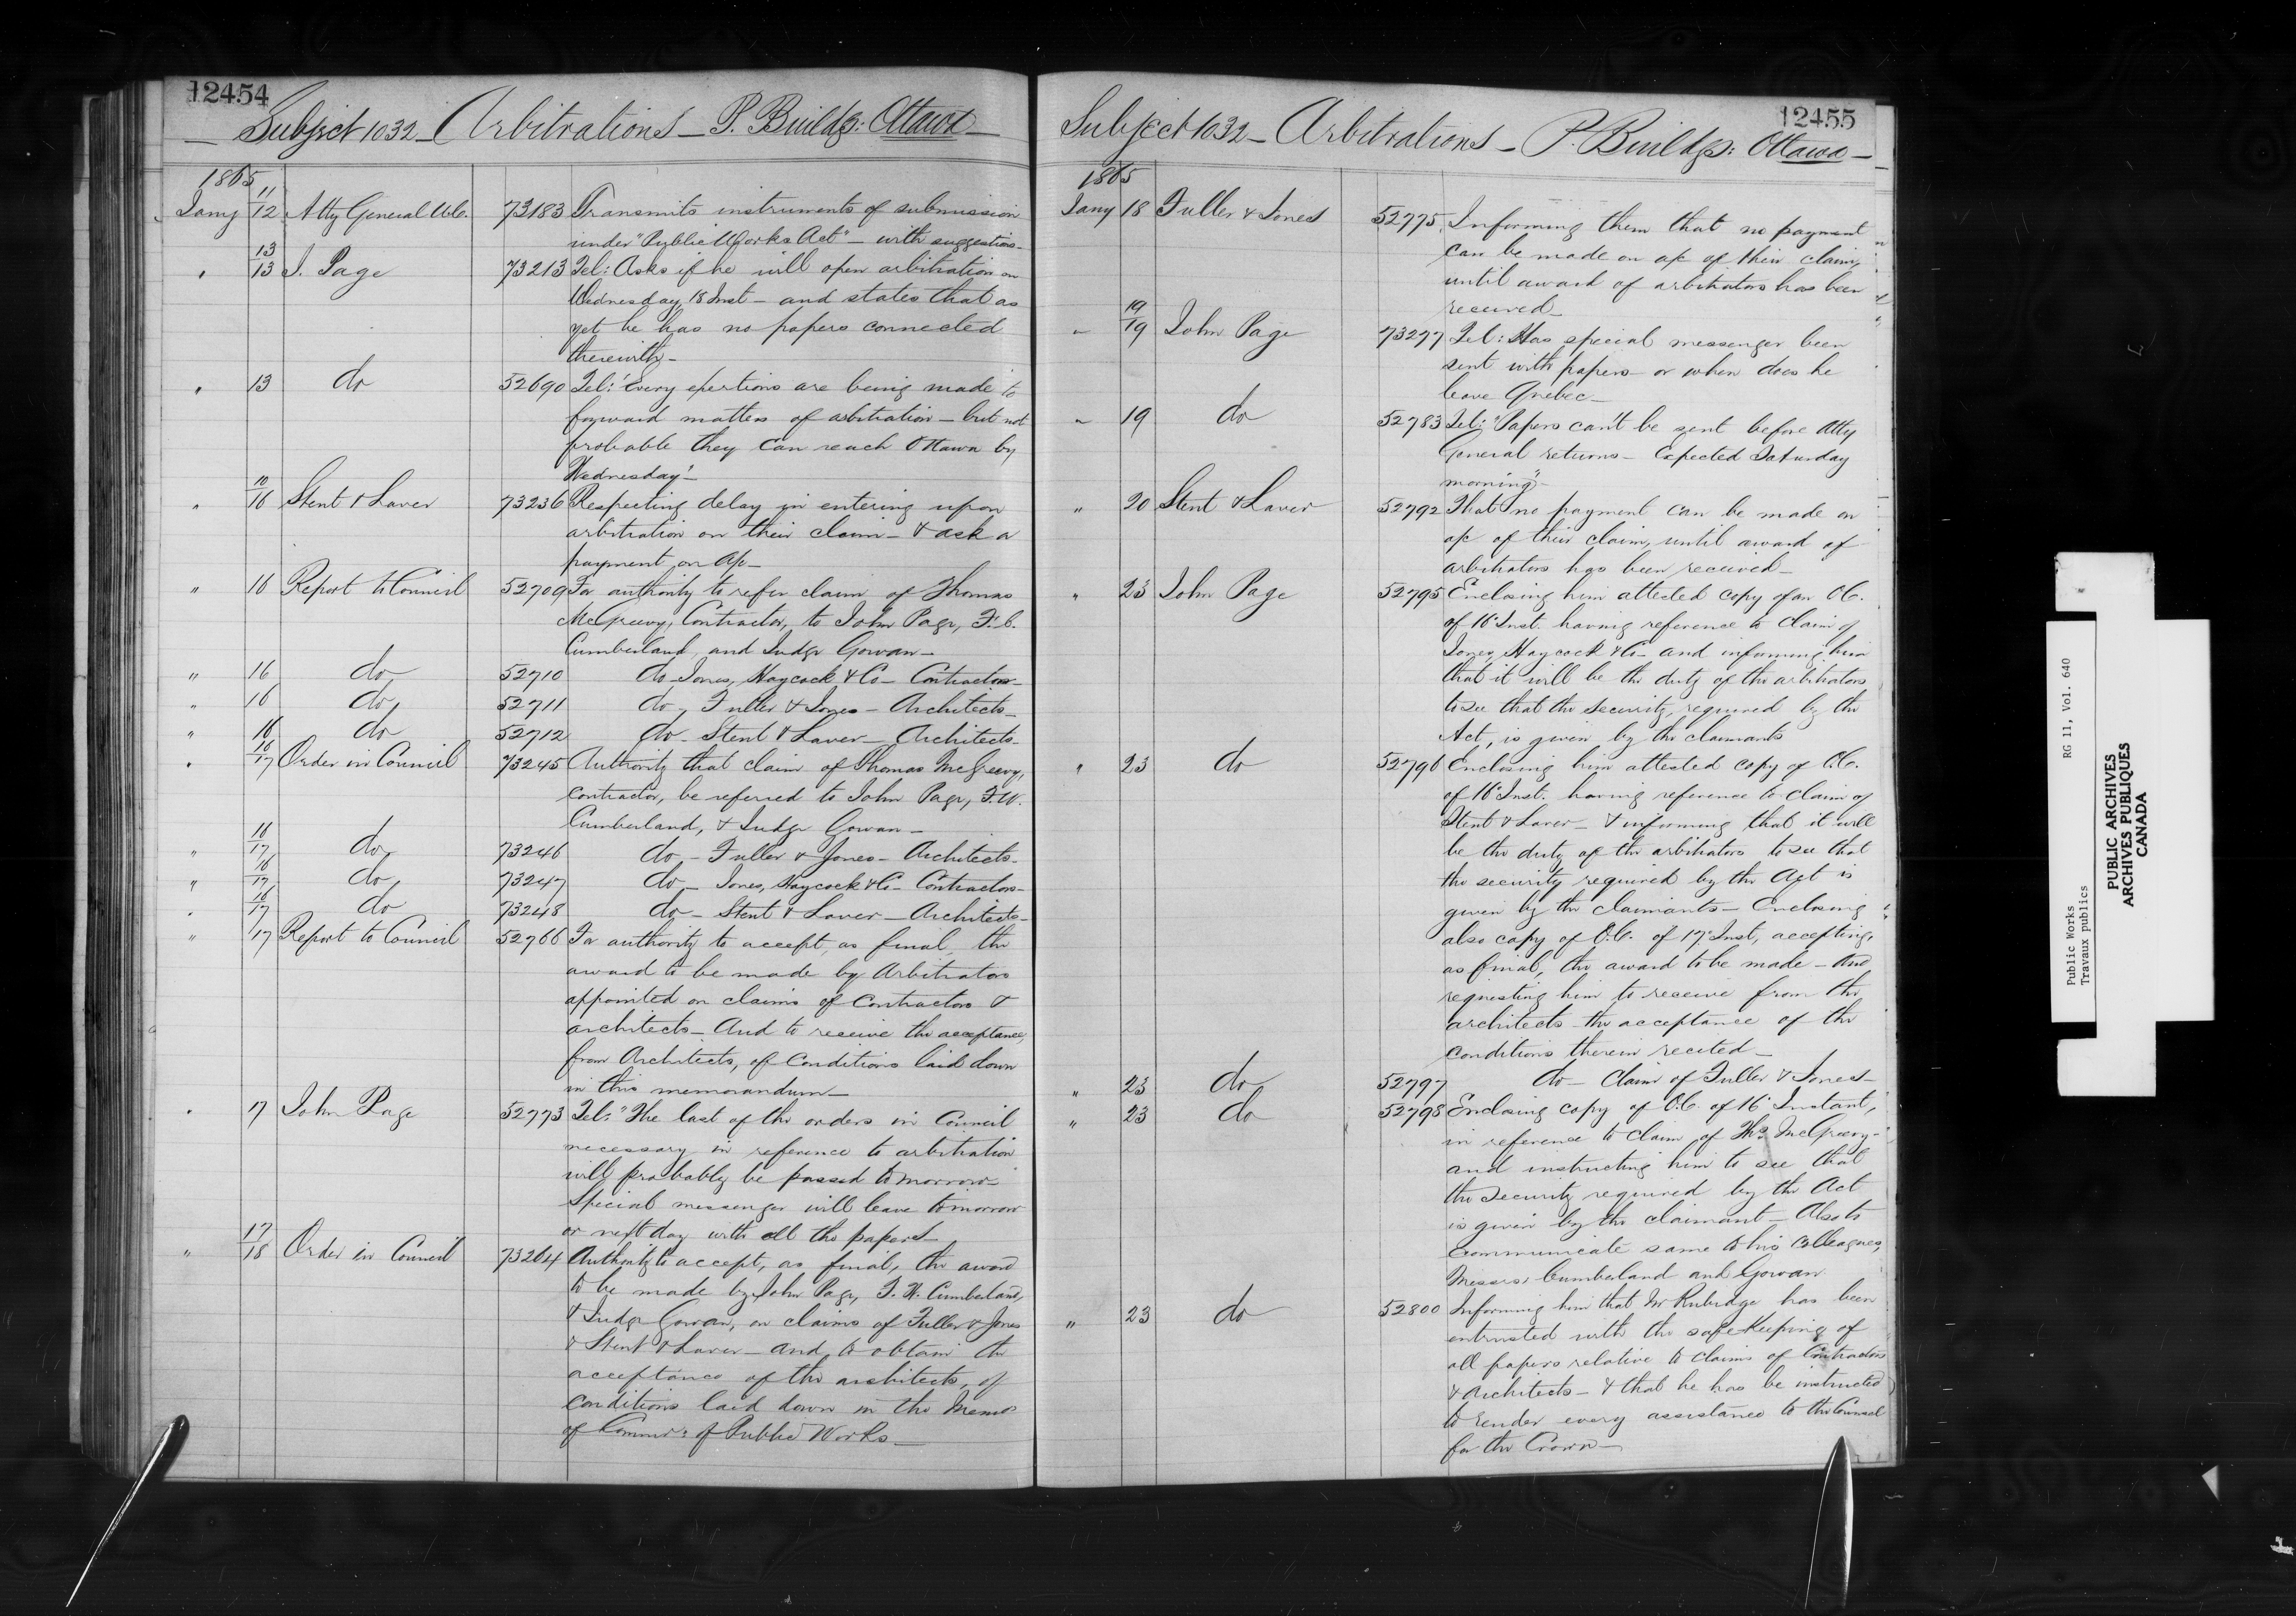 12454
Subject 1032 - Arbitrations - P. Buildgs: Ottawa -
1865
Jany 11/12 Atty General U.C. 73183 Transmits instruments of submission
under "Public Works Act" - with suggestions -
" 13/13 J. Page 73213 Tel: Asks if he will open arbitration on
Wednesday, 18 Inst - and states that as
yet he has no papers connected
therewith -
" 13 do 52690 Tel: "Every exertions are being made to
forward matters of arbitration - but not
probable they can reach Ottawa by
Wednesday" -
" 10/16 Stent & Laver 73236 Respecting delay in entering upon
arbitration on their claim - & ask a
payment on a/c -
" 16 Report to Council 52709 For authority to refer claim of Thomas
McGreevy, Contractor, to John Page, F. C.
Cumberland, and Judge Gowan -
" 16 do 52710 do - Jones, Haycock & Co - Contractors -
" 16 do 52711 do - Fuller & Jones - Architects -
" 16 do 52712 do - Stent & Laver - Architects -
" 16/17 Order in Council 73245 Authority that claim of Thomas McGreevy,
Contractor, be referred to John Page, F. W.
Cumberland, & Judge Gowan -
" 16/17 do 73246 do - Fuller & Jones - Architects -
" 16/17 do 73247 do - Jones, Haycock & Co - Contractors -
" 16/17 do 73248 do - Stent & Laver - Architects -
" 17 Report to Council 52766 For authority to accept, as final, the
award to be made by Arbitrators
appointed on claims of Contractors &
architects - And to receive the acceptance,
from Architects, of Conditions laid down
in this memorandum -
" 17 John Page 52773 Tel: "The last of the orders in Council
necessary in reference to arbitration
will probably be passed tomorrow -
Special messenger will leave tomorrow
or next day with all the papers -
" 17/18 Order in Council 73264 Authority to accept, as final, the award
to be made by John Page, F. W. Cumberland,
& Judge Gowan, on claims of Fuller & Jones
& Stent & Laver - and to obtain the
acceptance of the architects, of
conditions laid down in the Memo
of Commr: of Public Works -
12455
Subject 1032 - Arbitrations - P. Buildgs: Ottawa -
1865
Jany 18 Fuller & Jones 52775 Informing them that no payment
can be made on a/c of their claim,
until award of arbitrators has been
received -
" 19/19 John Page 73277 Tel: Has special messenger been
sent with papers or when does he
leave Quebec -
" 19 do 52783 Tel: "Papers can't be sent before Atty
General returns - Expected Saturday
morning" -
" 20 Stent & Laver 52792 That no payment can be made on
a/c of their claim, until award of
arbitrators has been received -
" 23 John Page 52795 Enclosing him attested copy of an O.C.
of 16 Inst. having reference to claim of
Jones, Haycock & Co - and informing him
that it will be the duty of the arbitrators
to see that the security, required by the
Act, is given by the claimants
" 23 do 52796 Enclosing him attested copy of O.C.
of 16 Inst. having reference to claim of
Stent & Laver - & informing that it will
be the duty of the arbitrators to see that
the security required by the Act is
given by the claimants - Enclosing
also copy of O.C. of 17 Inst, accepting,
as final, the award to be made - And
requesting him to receive from the
architects the acceptance of the
conditions therein recited -
" 23 do 52797 do - Claim of Fuller & Jones -
" 23 do 52798 Enclosing copy of O.C. of 16 Instant,
in reference to claim of Ths McGreevy -
and instructing him to see that
the security required by the Act
is given by the claimant - Also to
communicate same to his Colleagues,
Messrs. Cumberland and Gowan
" 23 do 52800 Informing him that Mr Rubidge has been
entrusted with the safe keeping of
all papers relative to claims of Contractors
& Architects - & that he has be instructed
to render every assistance to the Counsel
for the Crown -
Public Works RG 11, Vol. 640
Travaux publics
PUBLIC ARCHIVES
ARCHIVES PUBLIQUES
CANADA